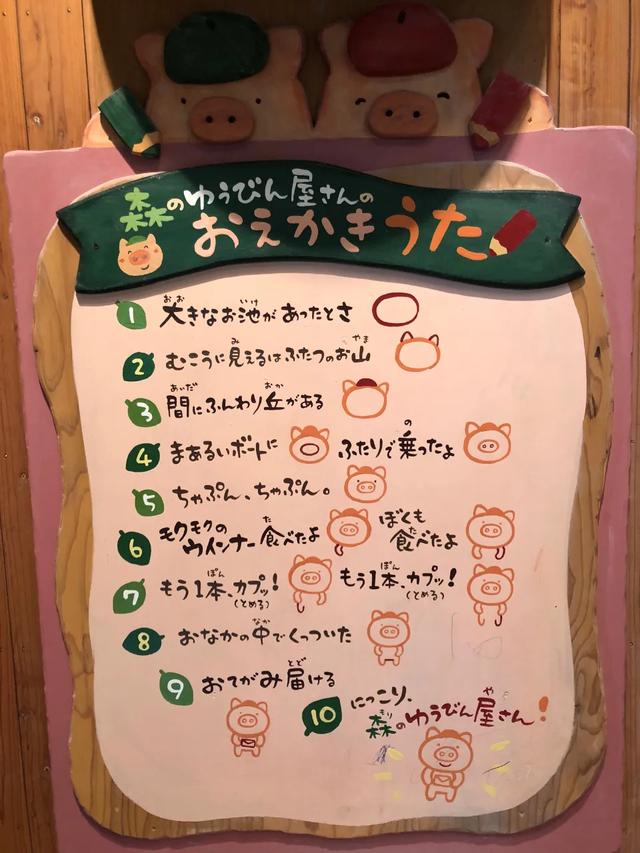 森のゆうびん屋さんの
おえかきうた
1 大きなお池があったとさ
2 むこうに見えるはふたつのお山
3 間にふんわり丘がある
4 まあるいボートに ふたりで乗ったよ
5 ちゃぷん、ちゃぷん。
6 モクモクのウインナー食べたよ ぼくも食べたよ
7 もう1本、カプッ!(とめる) もう1本、カプッ!(とめる)
8 おなかの中でくっついた
9 おてがみ届ける
10 にっこり、
森のゆうびん屋さん!